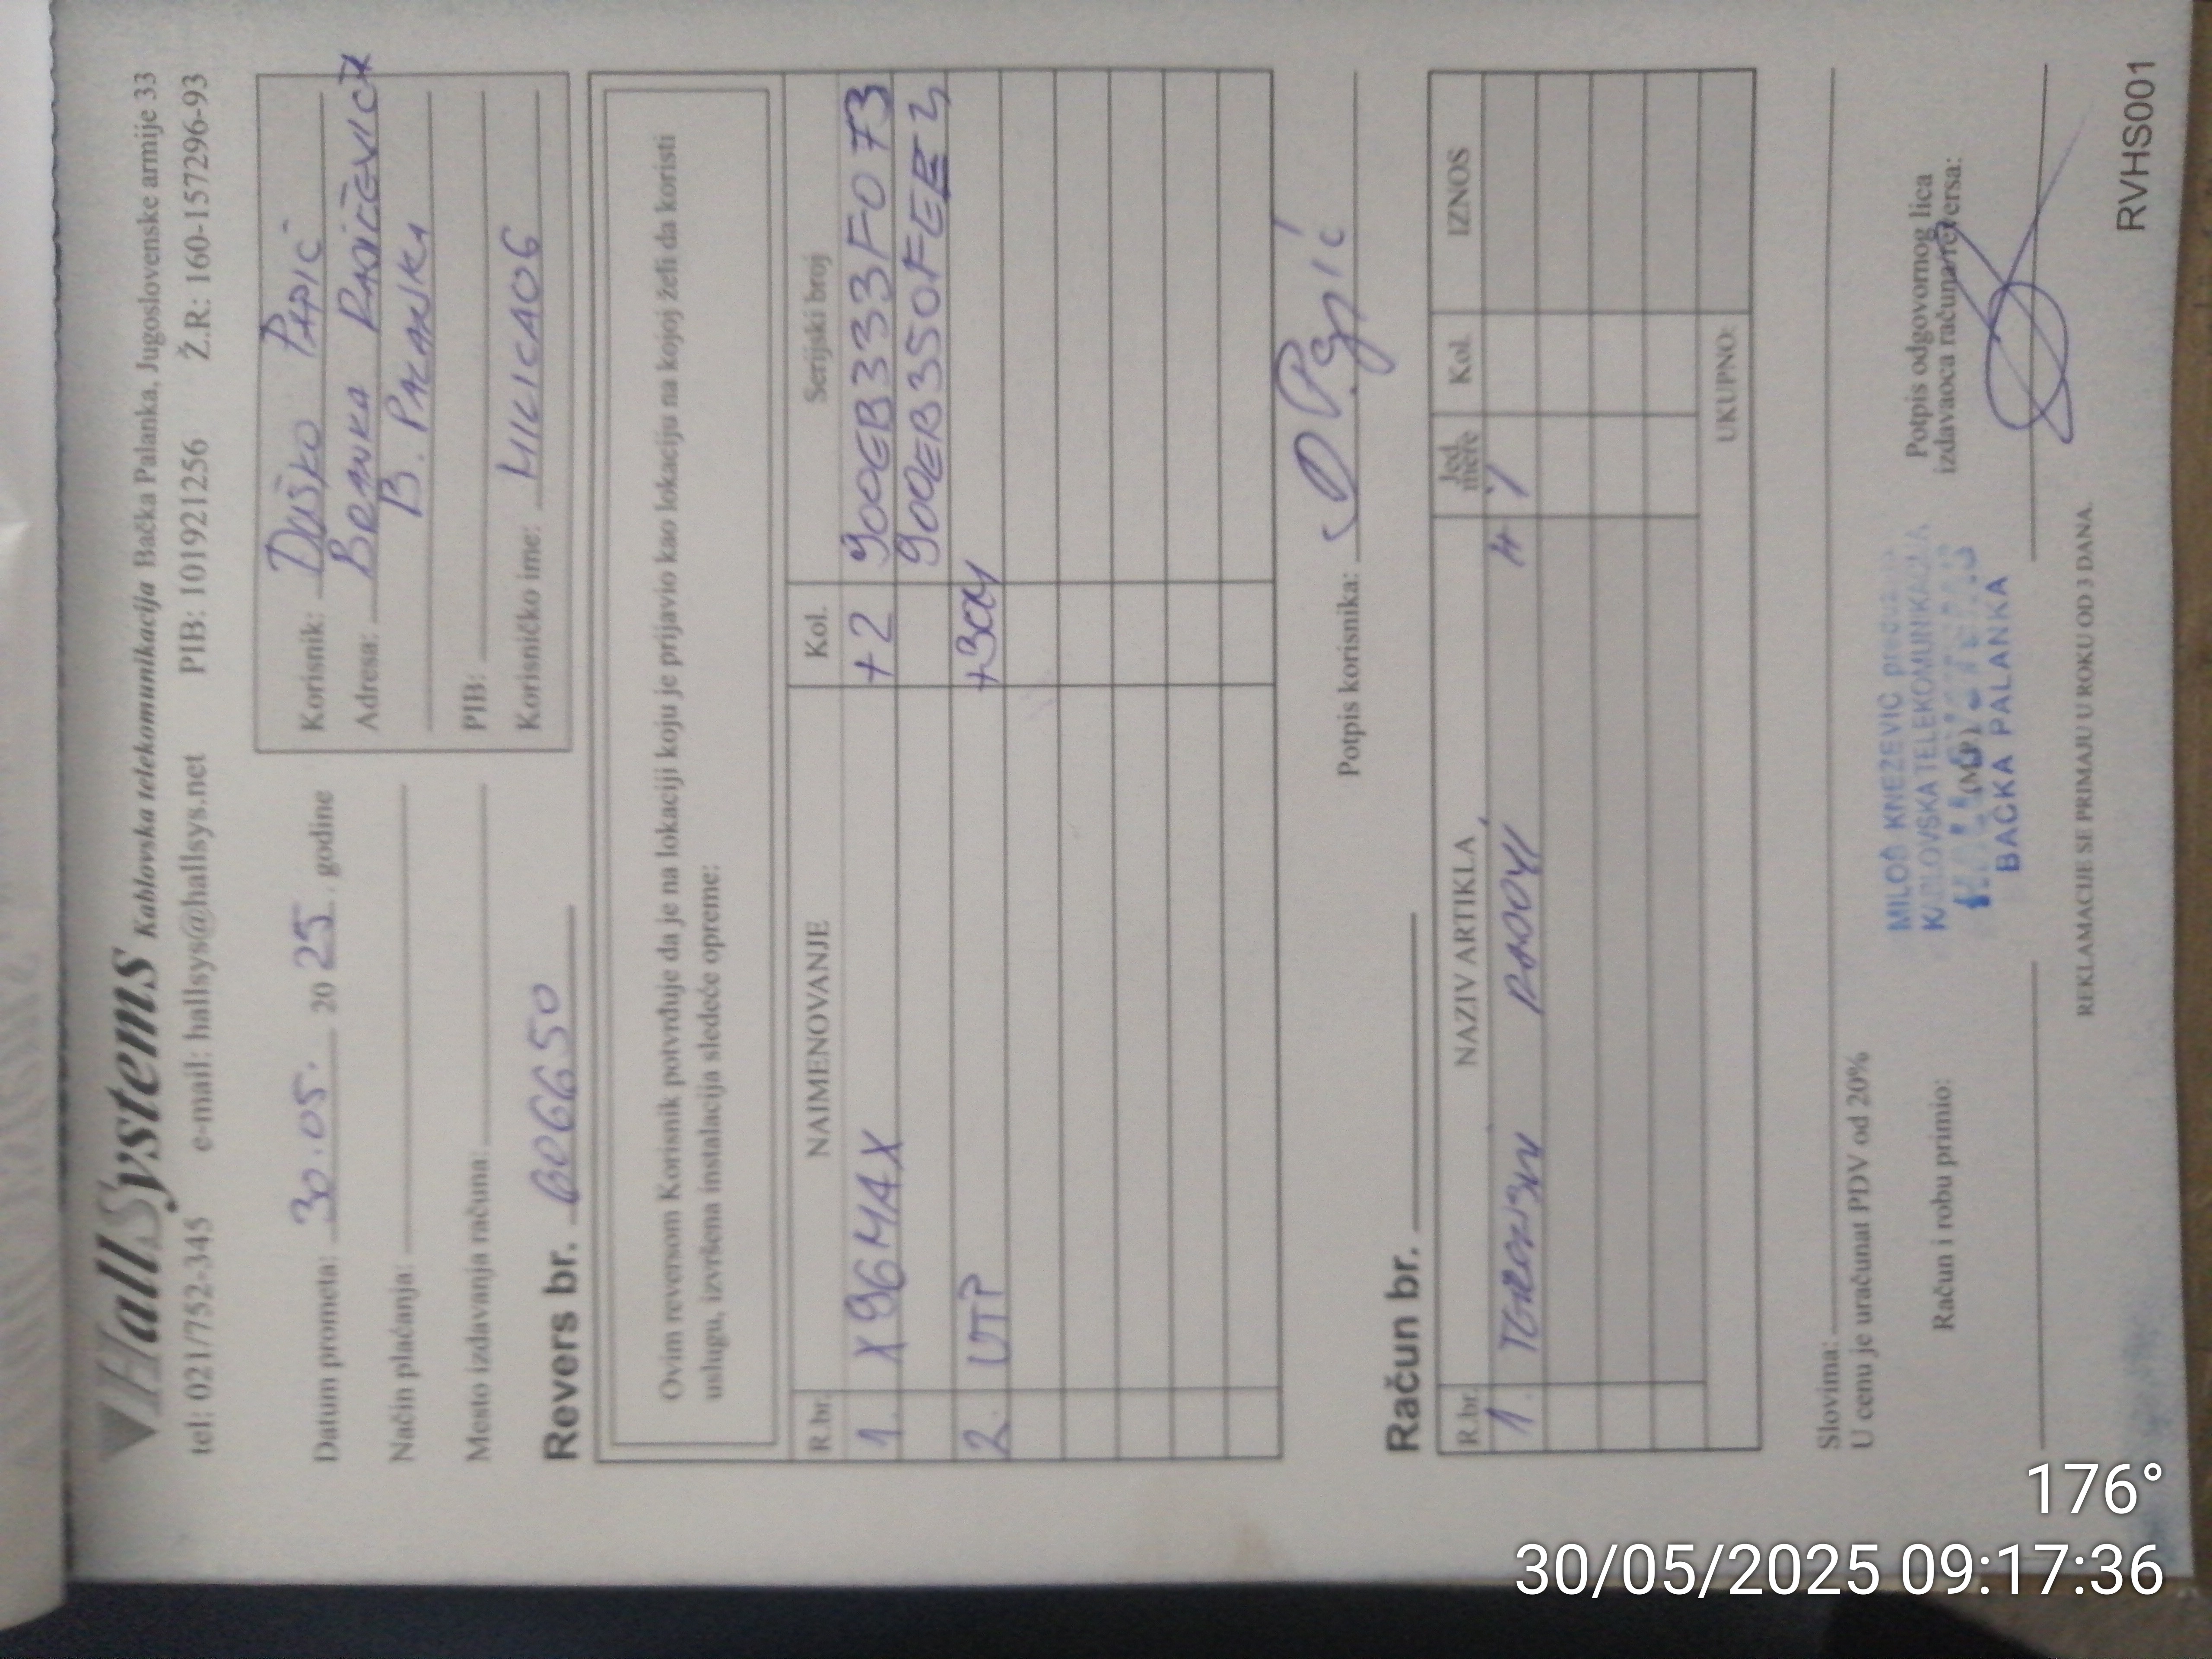 HallSystems Kablovska telekomunikacija Bačka Palanka, Jugoslovenske armije 33
tel: 021/752-345 e-mail: hallsys@hallsys.net PIB: 101921256 Ž.R: 160-157296-93
Datum prometa: 30.05. 2025. godine
Način plaćanja:
Mesto izdavanja računa:
Korisnik: Duško Papić
Adresa: Branka Radičevića
B. Palanka
PIB:
Korisničko ime: MILICA06
Revers br. 6066650
Ovim reversom Korisnik potvrđuje da je na lokaciji koju je prijavio kao lokaciju na kojoj želi da koristi
uslugu, izvršena instalacija sledeće opreme:
R.br. NAIMENOVANJE Kol. Serijski broj
1. X96MAX +2 900EB333F073
900EB350FEE3
2. UTP +30M
Potpis korisnika: D Papić
Račun br.
R.br. NAZIV ARTIKLA Jed. mere Kol. IZNOS
1.
UKUPNO:
Slovima:
U cenu je uračunat PDV od 20%
Račun i robu primio:
MILOŠ KNEŽEVIĆ
KABLOVSKA TELEKOMUNIKACIJA
(M.P.)
BAČKA PALANKA
Potpis odgovornog lica
izdavaoca računa/reversa:
REKLAMACIJE SE PRIMAJU U ROKU OD 3 DANA.
RVHS001
176°
30/05/2025 09:17:36